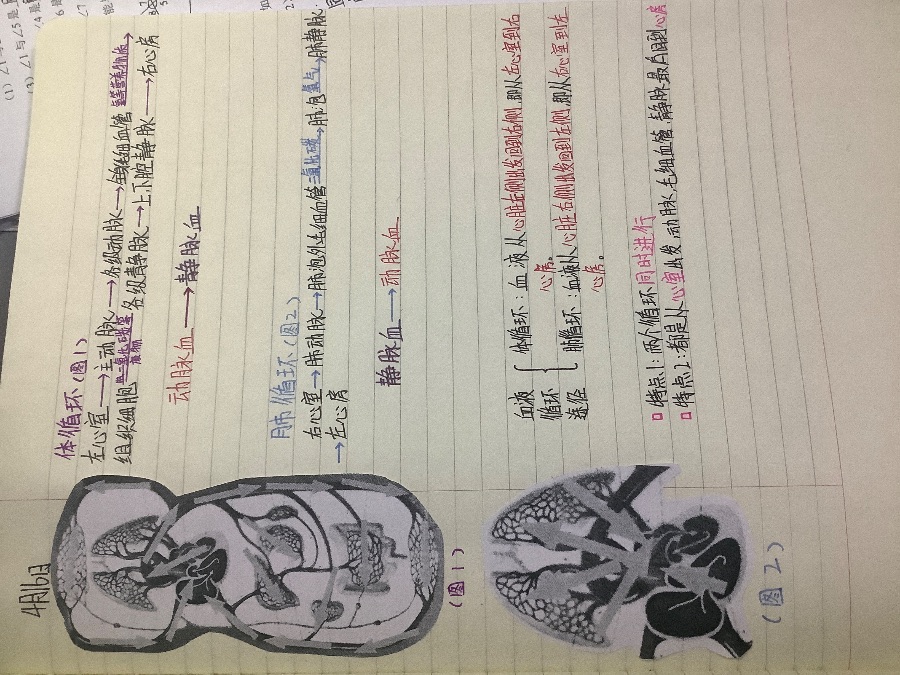 4月16日
体循环(图1)
左心室→主动脉→各级动脉→全身毛细血管 氧等营养物质→
组织细胞 二氧化碳等废物 各级静脉→上、下腔静脉→右心房
动脉血→静脉血
肺循环(图2)
右心室→肺动脉→肺泡外毛细血管 二氧化碳→肺泡 氧气→肺静脉
→左心房
静脉血→动脉血
血液循环途径
体循环:血液从心脏左侧出发回到右侧,即从左心室到右
心房。
肺循环:血液从心脏右侧出发回到左侧,即从右心室到左
心房。
特点1:两个循环同时进行
特点2:都是从心室出发,动脉,毛细血管,静脉,最后回到心房
(图1)
(图2)